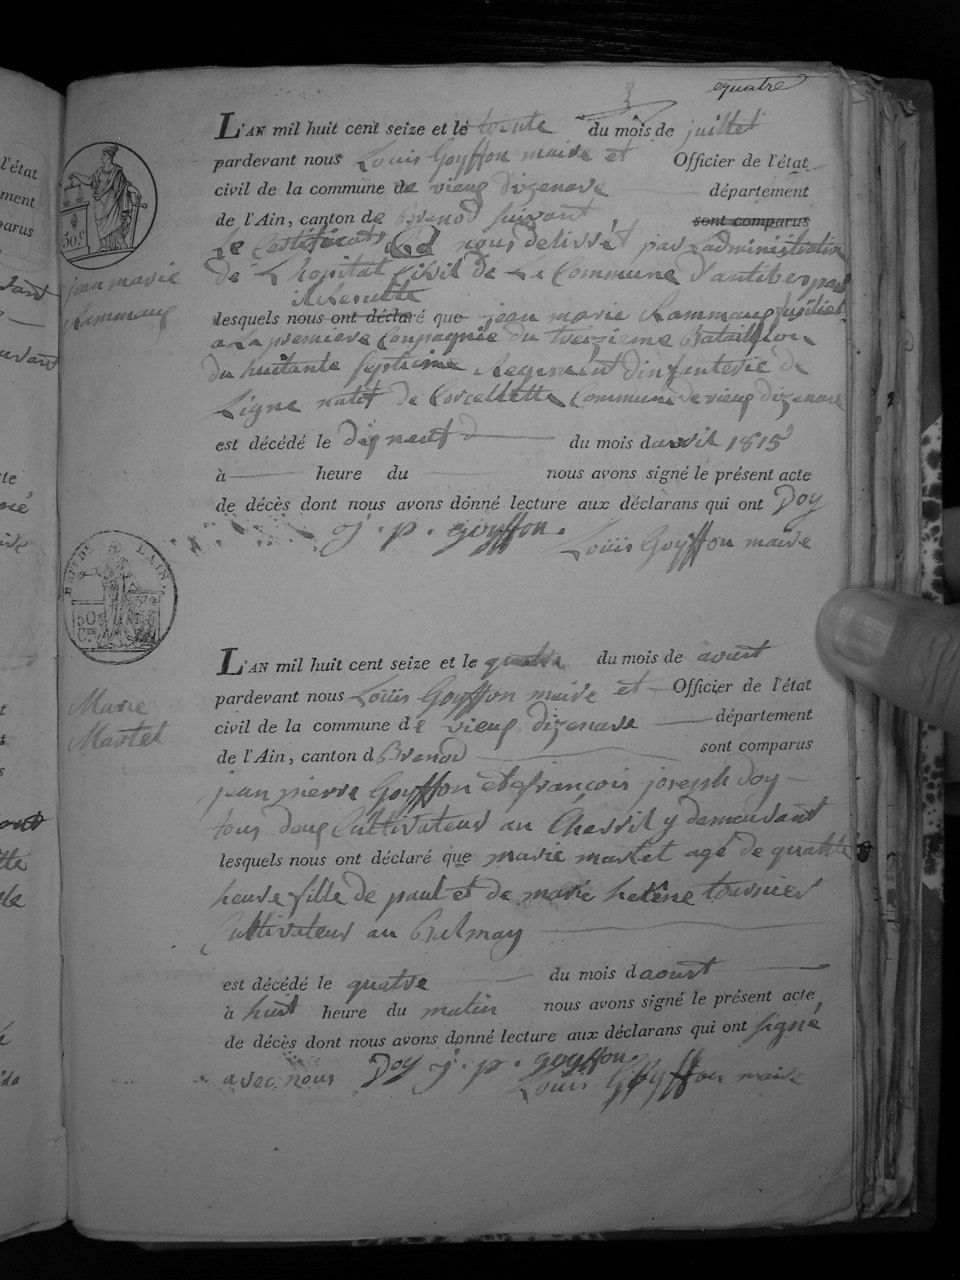 quatre
3
L'AN mil huit cent seize et le trente du mois de juillet
pardevant nous Louis Goyffon maire et Officier de l'état
civil de la commune de vieux dizenave département
de l'Ain, canton de Brenod suivant sont comparus
Le Certificat nous delivrét par Ladministration
De L hopital Civil de La Commune D'antibes
lesquels nous ont déclaré que jean marie Rammaux fusiliet
a La premiere Compagnie du treizieme Bataillion
du huitante septieme Regiment dinfanterie de
Ligne natif de Corcellette Commune de vieux dizenave
est décédé le dix neuf du mois d avril 1815
à heure du nous avons signé le présent acte
de décès dont nous avons donné lecture aux déclarans qui ont Doy
j. p. goyffon. Louis Goyffon maire
jean marie
Rammaux
50 c.
DEPT. DE L'AIN.
50
Cmes
L'AN mil huit cent seize et le quatre du mois de aoust
pardevant nous Louis Goyffon maire et Officier de l'état
civil de la commune de vieux dizenave département
de l'Ain, canton d Brenod sont comparus
jean pierre Goyffon et françois joseph Doy
tous deux Cultivateur au Chevril y demeurant
lesquels nous ont déclaré que marie martel agé de quattre
heure fille de paul et de marie helene tournier
Cultivateur au Balmay
est décédé le quatre du mois d aoust
à huit heure du matin nous avons signé le présent acte
de décès dont nous avons donné lecture aux déclarans qui ont signé
avec nous Doy j. p. goyffon. Louis Goyffon maire
Marie
Martel